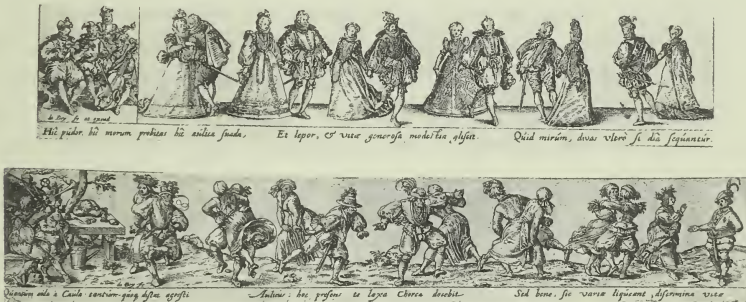 de Bry fe et excud
Hic pudor, hic morum probitas hic aulica suada, Et lepor, & vitæ generosa modestia gliscit. Quid mirum, divas vltro se dia sequantur.
de Bry fe
Quantum aula à Caula: tantum quoq, distat agresti Aulicus: hoc presens te Chorea docebit Sed bene, sic variæ liqueant discrimina vitæ